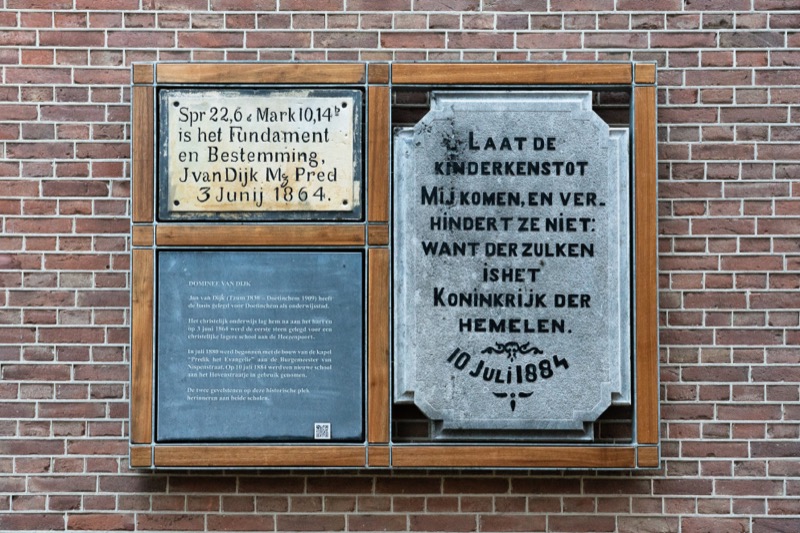 Spr 22,6 & Mark 10,14b
is het Fundament
en Bestemming,
J van Dijk Mz Pred
3 Junij 1864.
DOMINEE VAN DIJK
Jan van Dijk (Tzum 1830 – Doetinchem 1909) heeft
de basis gelegd voor Doetinchem als onderwijsstad.
Het christelijk onderwijs lag hem na aan het hart en
op 3 juni 1864 werd de eerste steen gelegd voor een
christelijke lagere school aan de Hezenpoort.
In juli 1880 werd begonnen met de bouw van de kapel
"Predik het Evangelie" aan de Burgemeester van
Nispenstraat. Op 10 juli 1884 werd een nieuwe school
aan het Havenstraatje in gebruik genomen.
De twee gevelstenen op deze historische plek
herinneren aan beide scholen.
LAAT DE
KINDERKENS TOT
MIJ KOMEN, EN VER-
HINDERT ZE NIET:
WANT DERZULKEN
IS HET
KONINKRIJK DER
HEMELEN.
10 JULI 1884